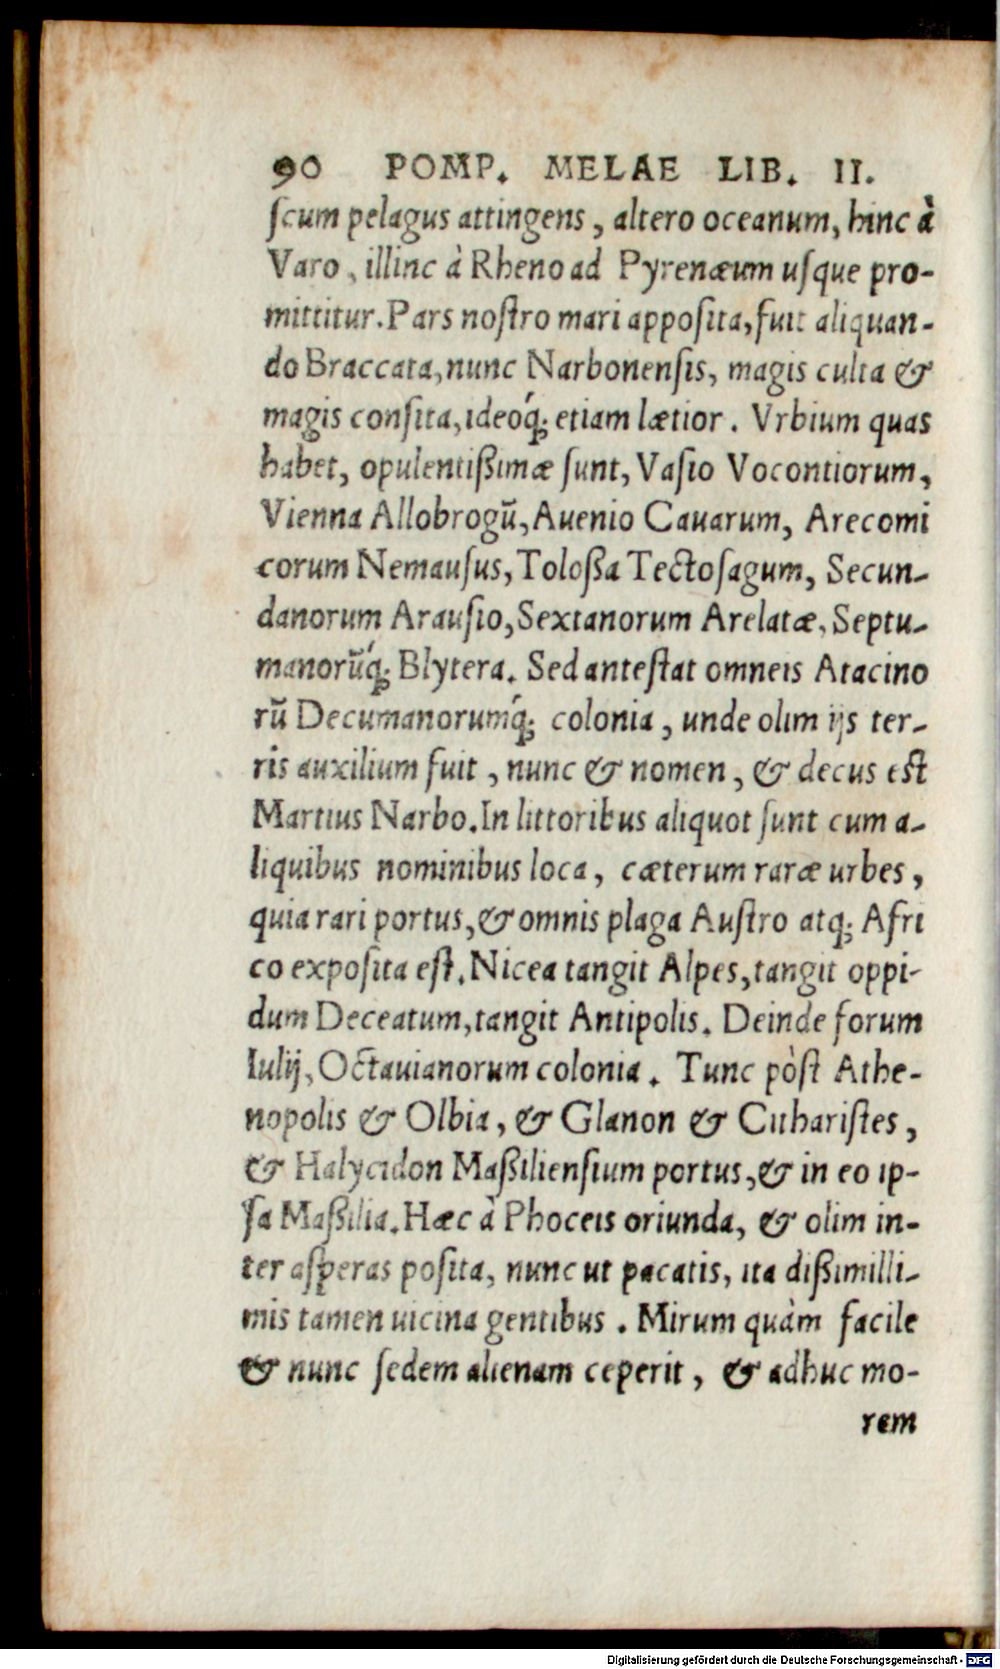 90 POMP. MELAE LIB. II.
ſcum pelagus attingens, altero oceanum, hinc à
Varo, illinc à Rheno ad Pyrenæum uſque pro-
mittitur. Pars noſtro mari appoſita, fuit aliquan-
do Braccata, nunc Narbonenſis, magis culta &
magis conſita, ideoq́; etiam lætior. Vrbium quas
habet, opulentißimæ ſunt, Vaſio Vocontiorum,
Vienna Allobrogū, Auenio Cauarum, Arecomi
corum Nemauſus, Toloßa Tectoſagum, Secun-
danorum Arauſio, Sextanorum Arelatæ, Septu-
manorūq́; Blytera. Sed anteſtat omneis Atacino
rū Decumanorumq́; colonia, unde olim ijs ter-
ris auxilium fuit, nunc & nomen, & decus eſt
Martius Narbo. In littoribus aliquot ſunt cum a-
liquibus nominibus loca, cæterum raræ urbes,
quia rari portus, & omnis plaga Auſtro atq; Afri
co expoſita eſt. Nicea tangit Alpes, tangit oppi-
dum Deceatum, tangit Antipolis. Deinde forum
Iulij, Octauianorum colonia. Tunc pòſt Athe-
nopolis & Olbia, & Glanon & Cithariſtes,
& Halycidon Maßilienſium portus, & in eo ip-
ſa Maßilia. Hæc à Phoceis oriunda, & olim in-
ter aſperas poſita, nunc ut pacatis, ita dißimilli-
mis tamen uicina gentibus. Mirum quàm facile
& nunc ſedem alienam ceperit, & adhuc mo-
rem
Digitalisierung gefördert durch die Deutsche Forschungsgemeinschaft - DFG